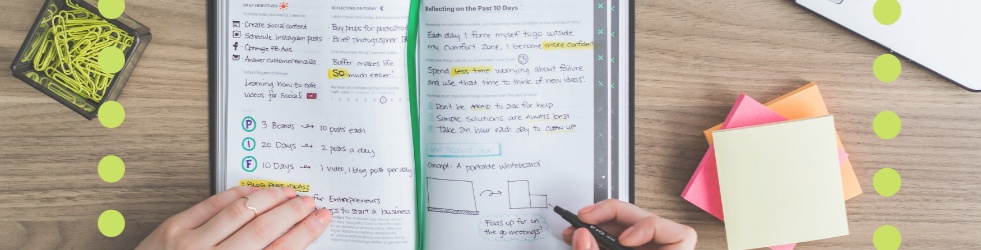 DAILY OBJECTIVES
Create social content
Schedule Instagram posts
Optimize FB Ads
Answer customer emails
Learning how to edit
videos for Social
P 3 Boards → 10 posts each
I 20 Days → 2 posts a day
F 10 Days → 1 video, 1 blog post per day
for Entrepreneurs
to start a business
REFLECTING ON TODAY
Buy props for
Brief photographer
Buffer makes life
SO much easier!
Reflecting on the Past 10 Days
Each day I force myself to go outside
my comfort zone, I become more confident
Spend less time worrying about failure
and use that time to think of new ideas!
Don't be AFRAID to ask for help
Simple solutions are ALWAYS BEST
Take an hour each day to CLEAN UP
Concept: A portable whiteboard
Folds up for on
the go meetings!